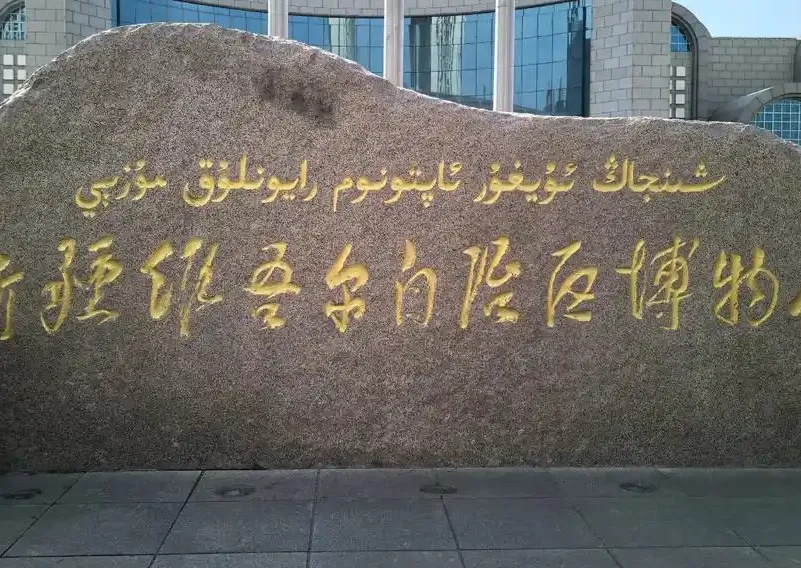 شىنجاڭ ئۇيغۇر ئاپتونوم رايونلۇق مۇزېيى
新疆维吾尔自治区博物